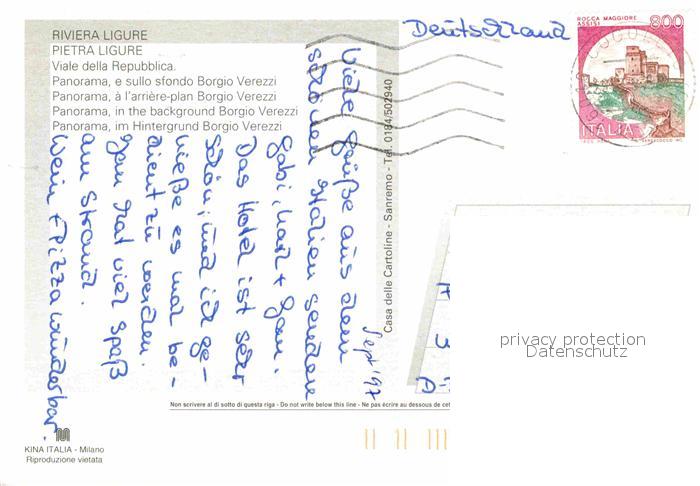 RIVIERA LIGURE
PIETRA LIGURE
Viale della Repubblica.
Panorama, e sullo sfondo Borgio Verezzi
Panorama, à l'arrière-plan Borgio Verezzi
Panorama, in the background Borgio Verezzi
Panorama, im Hintergrund Borgio Verezzi
Deutschland
ROCCA MAGGIORE
ASSISI
800
ITALIA
Sept '97
Viele Grüße aus dem
schönen Italien senden
Gabi, + 
Das Hotel ist sehr
schön, und ich ge-
nieße es mal be-
dient zu werden.
hat viel Spaß
am Strand.
Wein + Pizza wunderbar.
Casa delle Cartoline - Sanremo - Tel. 0184/502940
Non scrivere al di sotto di questa riga - Do not write below this line - Ne pas écrire au dessous de cet
privacy protection
Datenschutz
KINA ITALIA - Milano
Riproduzione vietata